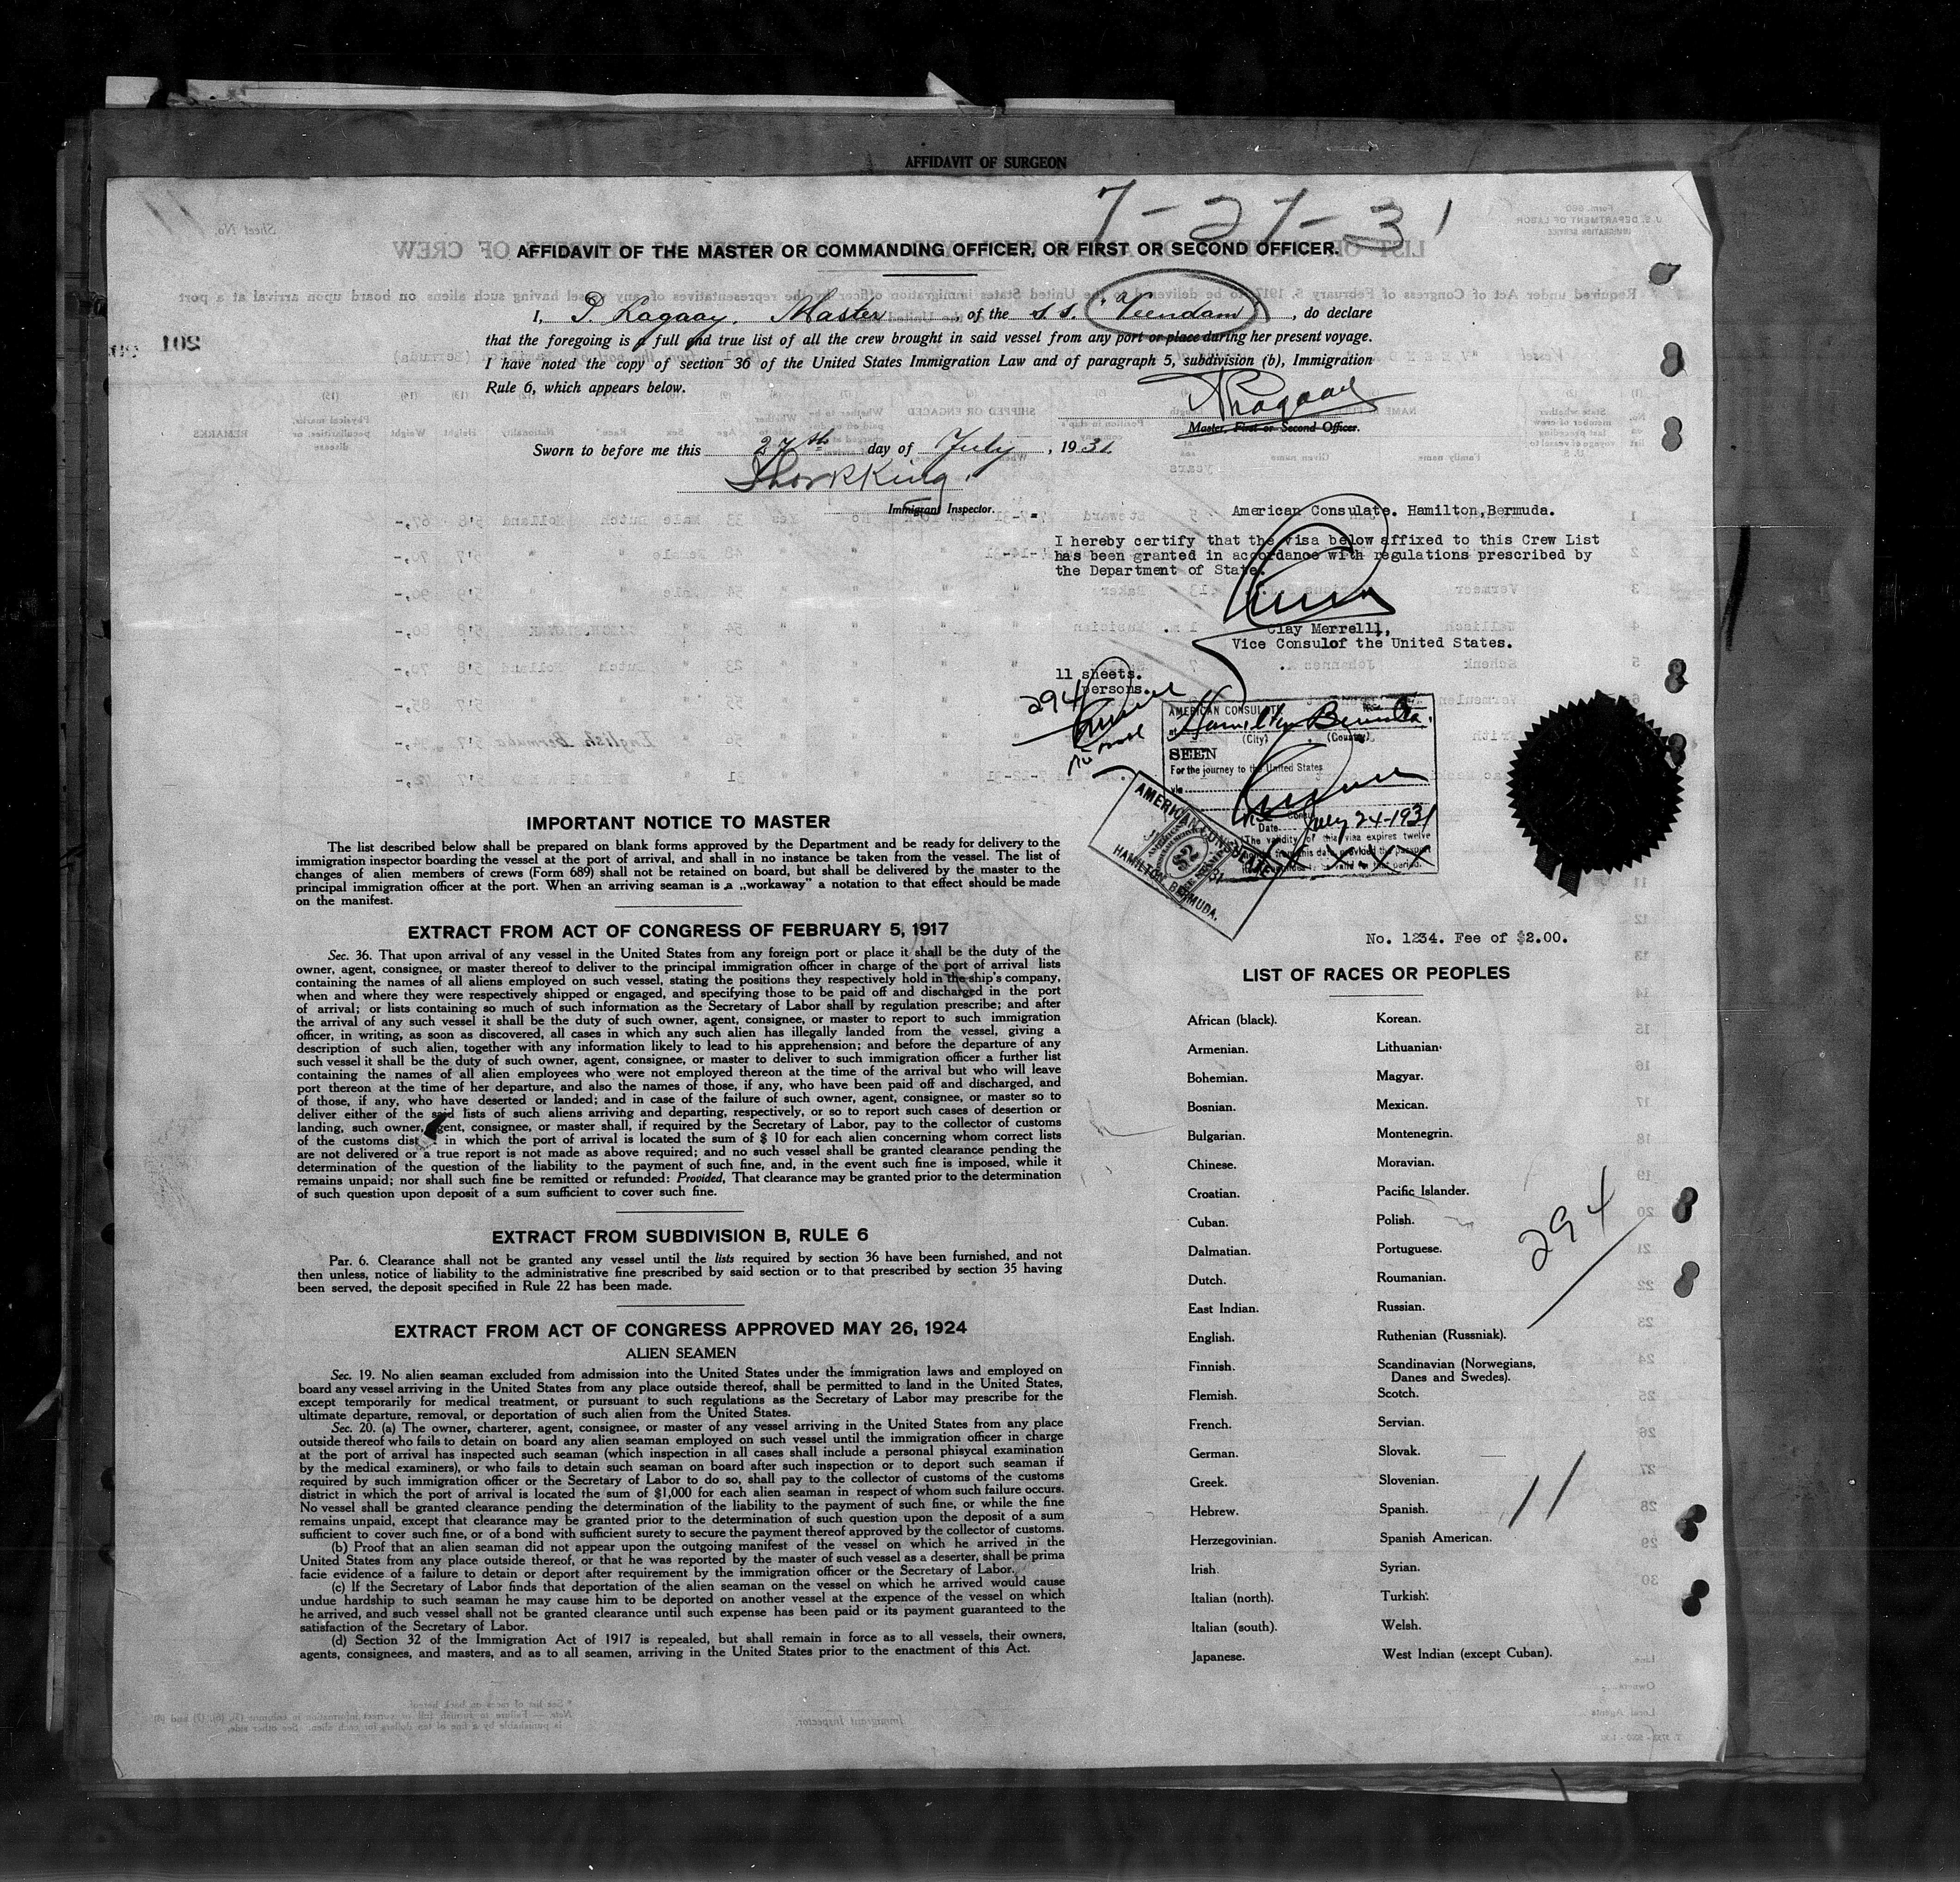 AFFIDAVIT OF SURGEON
7-27-31
AFFIDAVIT OF THE MASTER OR COMMANDING OFFICER, OR FIRST OR SECOND OFFICER.
I, P. Lagaay, Master, of the S.S. "Veendam", do declare
that the foregoing is a full and true list of all the crew brought in said vessel from any port or place during her present voyage.
I have noted the copy of section 36 of the United States Immigration Law and of paragraph 5, subdivision (b), Immigration
Rule 6, which appears below.
Master, First or Second Officer.
Sworn to before me this 27th day of July, 1931
Immigrant Inspector.
American Consulate. Hamilton,Bermuda.
I hereby certify that the visa below affixed to this Crew List
has been granted in accordance with regulations prescribed by
the Department of State.
Clay Merrell,
Vice Consulof the United States.
11 sheets.
294 persons.
AMERICAN CONSULATE
at Hamilton Bermuda.
(City) (Country)
SEEN
For the journey to the United States
via
Date July 24-1931
The validity of this visa expires twelve
months from this date provided the passport
AMERICAN CONSULATE
$2
HAMILTON, BERMUDA.
No. 1234. Fee of $2.00.
IMPORTANT NOTICE TO MASTER
The list described below shall be prepared on blank forms approved by the Department and be ready for delivery to the
immigration inspector boarding the vessel at the port of arrival, and shall in no instance be taken from the vessel. The list of
changes of alien members of crews (Form 689) shall not be retained on board, but shall be delivered by the master to the
principal immigration officer at the port. When an arriving seaman is a „workaway” a notation to that effect should be made
on the manifest.
EXTRACT FROM ACT OF CONGRESS OF FEBRUARY 5, 1917
Sec. 36. That upon arrival of any vessel in the United States from any foreign port or place it shall be the duty of the
owner, agent, consignee, or master thereof to deliver to the principal immigration officer in charge of the port of arrival lists
containing the names of all aliens employed on such vessel, stating the positions they respectively hold in the ship's company,
when and where they were respectively shipped or engaged, and specifying those to be paid off and discharged in the port
of arrival; or lists containing so much of such information as the Secretary of Labor shall by regulation prescribe; and after
the arrival of any such vessel it shall be the duty of such owner, agent, consignee, or master to report to such immigration
officer, in writing, as soon as discovered, all cases in which any such alien has illegally landed from the vessel, giving a
description of such alien, together with any information likely to lead to his apprehension; and before the departure of any
such vessel it shall be the duty of such owner, agent, consignee, or master to deliver to such immigration officer a further list
containing the names of all alien employees who were not employed thereon at the time of the arrival but who will leave
port thereon at the time of her departure, and also the names of those, if any, who have been paid off and discharged, and
of those, if any, who have deserted or landed; and in case of the failure of such owner, agent, consignee, or master so to
deliver either of the said lists of such aliens arriving and departing, respectively, or so to report such cases of desertion or
landing, such owner, agent, consignee, or master shall, if required by the Secretary of Labor, pay to the collector of customs
of the customs dist in which the port of arrival is located the sum of $ 10 for each alien concerning whom correct lists
are not delivered or a true report is not made as above required; and no such vessel shall be granted clearance pending the
determination of the question of the liability to the payment of such fine, and, in the event such fine is imposed, while it
remains unpaid; nor shall such fine be remitted or refunded: Provided, That clearance may be granted prior to the determination
of such question upon deposit of a sum sufficient to cover such fine.
EXTRACT FROM SUBDIVISION B, RULE 6
Par. 6. Clearance shall not be granted any vessel until the lists required by section 36 have been furnished, and not
then unless, notice of liability to the administrative fine prescribed by said section or to that prescribed by section 35 having
been served, the deposit specified in Rule 22 has been made.
EXTRACT FROM ACT OF CONGRESS APPROVED MAY 26, 1924
ALIEN SEAMEN
Sec. 19. No alien seaman excluded from admission into the United States under the immigration laws and employed on
board any vessel arriving in the United States from any place outside thereof, shall be permitted to land in the United States,
except temporarily for medical treatment, or pursuant to such regulations as the Secretary of Labor may prescribe for the
ultimate departure, removal, or deportation of such alien from the United States.
Sec. 20. (a) The owner, charterer, agent, consignee, or master of any vessel arriving in the United States from any place
outside thereof who fails to detain on board any alien seaman employed on such vessel until the immigration officer in charge
at the port of arrival has inspected such seaman (which inspection in all cases shall include a personal phisycal examination
by the medical examiners), or who fails to detain such seaman on board after such inspection or to deport such seaman if
required by such immigration officer or the Secretary of Labor to do so, shall pay to the collector of customs of the customs
district in which the port of arrival is located the sum of $1,000 for each alien seaman in respect of whom such failure occurs.
No vessel shall be granted clearance pending the determination of the liability to the payment of such fine, or while the fine
remains unpaid, except that clearance may be granted prior to the determination of such question upon the deposit of a sum
sufficient to cover such fine, or of a bond with sufficient surety to secure the payment thereof approved by the collector of customs.
(b) Proof that an alien seaman did not appear upon the outgoing manifest of the vessel on which he arrived in the
United States from any place outside thereof, or that he was reported by the master of such vessel as a deserter, shall be prima
facie evidence of a failure to detain or deport after requirement by the immigration officer or the Secretary of Labor.
(c) If the Secretary of Labor finds that deportation of the alien seaman on the vessel on which he arrived would cause
undue hardship to such seaman he may cause him to be deported on another vessel at the expence of the vessel on which
he arrived, and such vessel shall not be granted clearance until such expense has been paid or its payment guaranteed to the
satisfaction of the Secretary of Labor.
(d) Section 32 of the Immigration Act of 1917 is repealed, but shall remain in force as to all vessels, their owners,
agents, consignees, and masters, and as to all seamen, arriving in the United States prior to the enactment of this Act.
LIST OF RACES OR PEOPLES
African (black).
Armenian.
Bohemian.
Bosnian.
Bulgarian.
Chinese.
Croatian.
Cuban.
Dalmatian.
Dutch.
East Indian.
English.
Finnish.
Flemish.
French.
German.
Greek.
Hebrew.
Herzegovinian.
Irish.
Italian (north).
Italian (south).
Japanese.
Korean.
Lithuanian.
Magyar.
Mexican.
Montenegrin.
Moravian.
Pacific Islander.
Polish.
Portuguese.
Roumanian.
Russian.
Ruthenian (Russniak).
Scandinavian (Norwegians,
Danes and Swedes).
Scotch.
Servian.
Slovak.
Slovenian.
Spanish.
Spanish American.
Syrian.
Turkish.
Welsh.
West Indian (except Cuban).
294
11